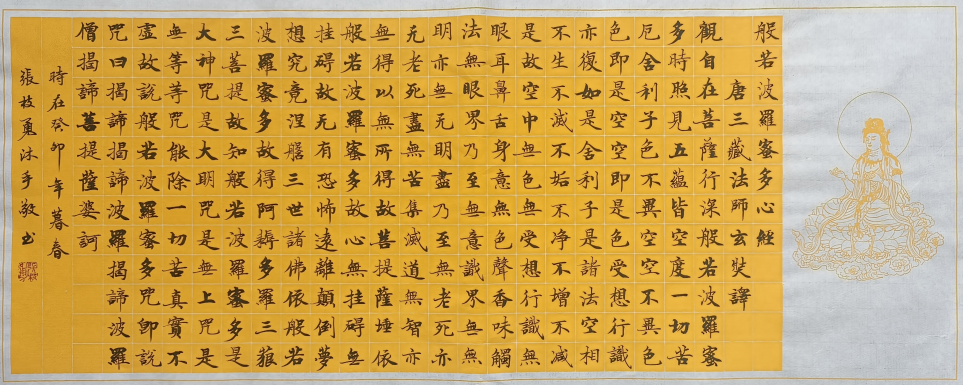 般若波羅蜜多心經
唐三藏法師玄奘譯
觀自在菩薩行深般若波羅蜜
多時照見五蘊皆空度一切苦
厄舍利子色不異空空不異色
色即是空空即是色受想行識
亦復如是舍利子是諸法空相
不生不滅不垢不净不增不减
是故空中無色無受想行識無
眼耳鼻舌身意無色聲香味觸
法無眼界乃至無意識界無無
明亦無无明盡乃至無老死亦
无老死盡无苦集滅道無智亦
無得以無所得故菩提薩埵依
般若波羅蜜多故心無挂碍無
挂碍故无有恐怖遠離顛倒夢
想究竟涅槃三世諸佛依般若
波羅蜜多故得阿耨多羅三藐
三菩提故知般若波羅蜜多是
大神咒是大明咒是無上咒是
無等等咒能除一切苦真實不
虛故說般若波羅蜜多咒即說
咒曰揭諦揭諦波羅揭諦波羅
僧揭諦菩提薩婆訶
時在癸卯年暮春
張枝勇沐手敬书